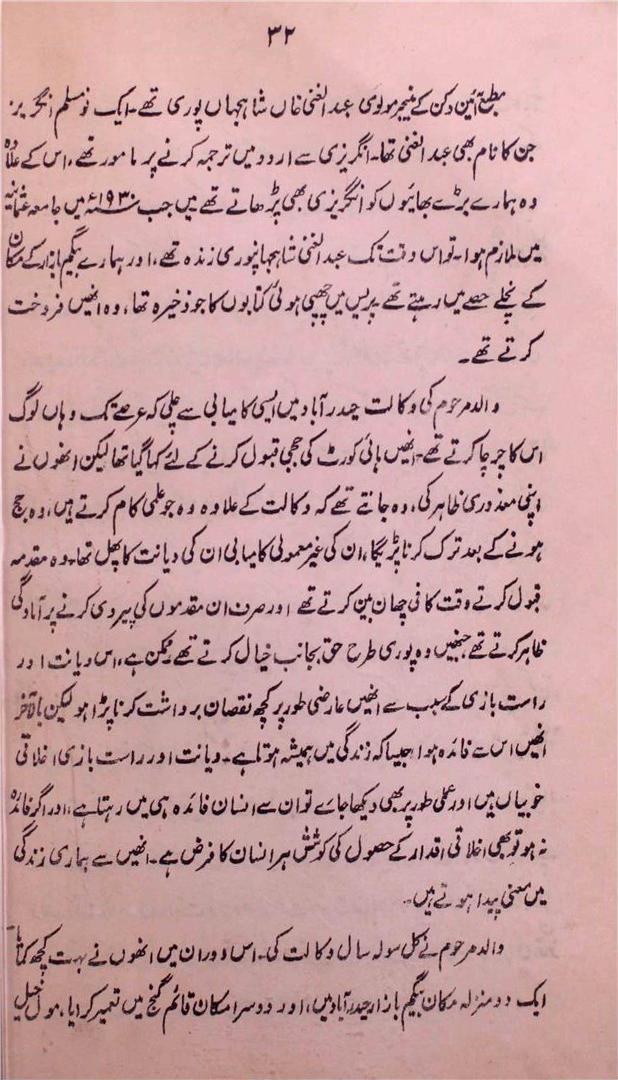 ۳۲
مطبع آئین دکن کے منیجر مولوی عبدالغنی خاں شاہجہاں پوری تھے۔ ایک نو مسلم انگریز
جن کا نام بھی عبدالغنی تھا۔ انگریزی سے اردو میں ترجمہ کرنے پر مامور تھے، اس کے علاوہ
وہ ہمارے بڑے بھائیوں کو انگریزی بھی پڑھاتے تھے میں جب ۱۹۳۰ء میں جامعہ عثمانیہ
میں ملازم ہوا۔ تو اس وقت تک عبدالغنی شاہجہانپوری زندہ تھے، اور ہمارے بیگم بازار کے مکان
کے نچلے حصے میں رہتے تھے پریس میں چھپی ہوئی کتابوں کا جو ذخیرہ تھا، وہ انھیں فروخت
کرتے تھے۔
والد مرحوم کی وکالت حیدرآباد میں ایسی کامیابی سے چلی کہ عرصے تک وہاں لوگ
اس کا چرچا کرتے تھے۔ انھیں ہائی کورٹ کی ججی قبول کرنے کے لئے کہا گیا تھا لیکن انھوں نے
اپنی معذوری ظاہر کی، وہ جانتے تھے کہ وکالت کے علاوہ وہ جو علمی کام کرتے ہیں، وہ جج
ہونے کے بعد ترک کرنا پڑیگا، ان کی غیر معمولی کامیابی ان کی دیانت کا پھل تھا۔ وہ مقدمہ
قبول کرتے وقت کافی چھان بین کرتے تھے اور صرف ان مقدموں کی پیروی کرنے پر آمادگی
ظاہر کرتے تھے جنھیں وہ پوری طرح حق بجانب خیال کرتے تھے ممکن ہے، اس دیانت اور
راست بازی کے سبب سے انھیں عارضی طور پر کچھ نقصان برداشت کرنا پڑا ہو لیکن بالآخر
انھیں اس سے فائدہ ہوا، جیسا کہ زندگی میں ہمیشہ ہوتا ہے۔ دیانت اور راست بازی اخلاقی
خوبیاں ہیں اور عملی طور پر بھی دیکھا جائے تو ان سے انسان فائدہ ہی میں رہتا ہے، اور اگر فائدہ
نہ ہو تو بھی اخلاقی اقدار کے حصول کی کوشش ہر انسان کا فرض ہے۔ انھیں سے ہماری زندگی
میں معنی پیدا ہوتے ہیں۔
والد مرحوم نے کل سولہ سال وکالت کی۔ اس دوران میں انھوں نے بہت کچھ کمایا۔
ایک دو منزلہ مکان بیگم بازار حیدرآباد میں، اور دوسرا مکان قائم گنج میں تعمیر کر دیا، مول خیل